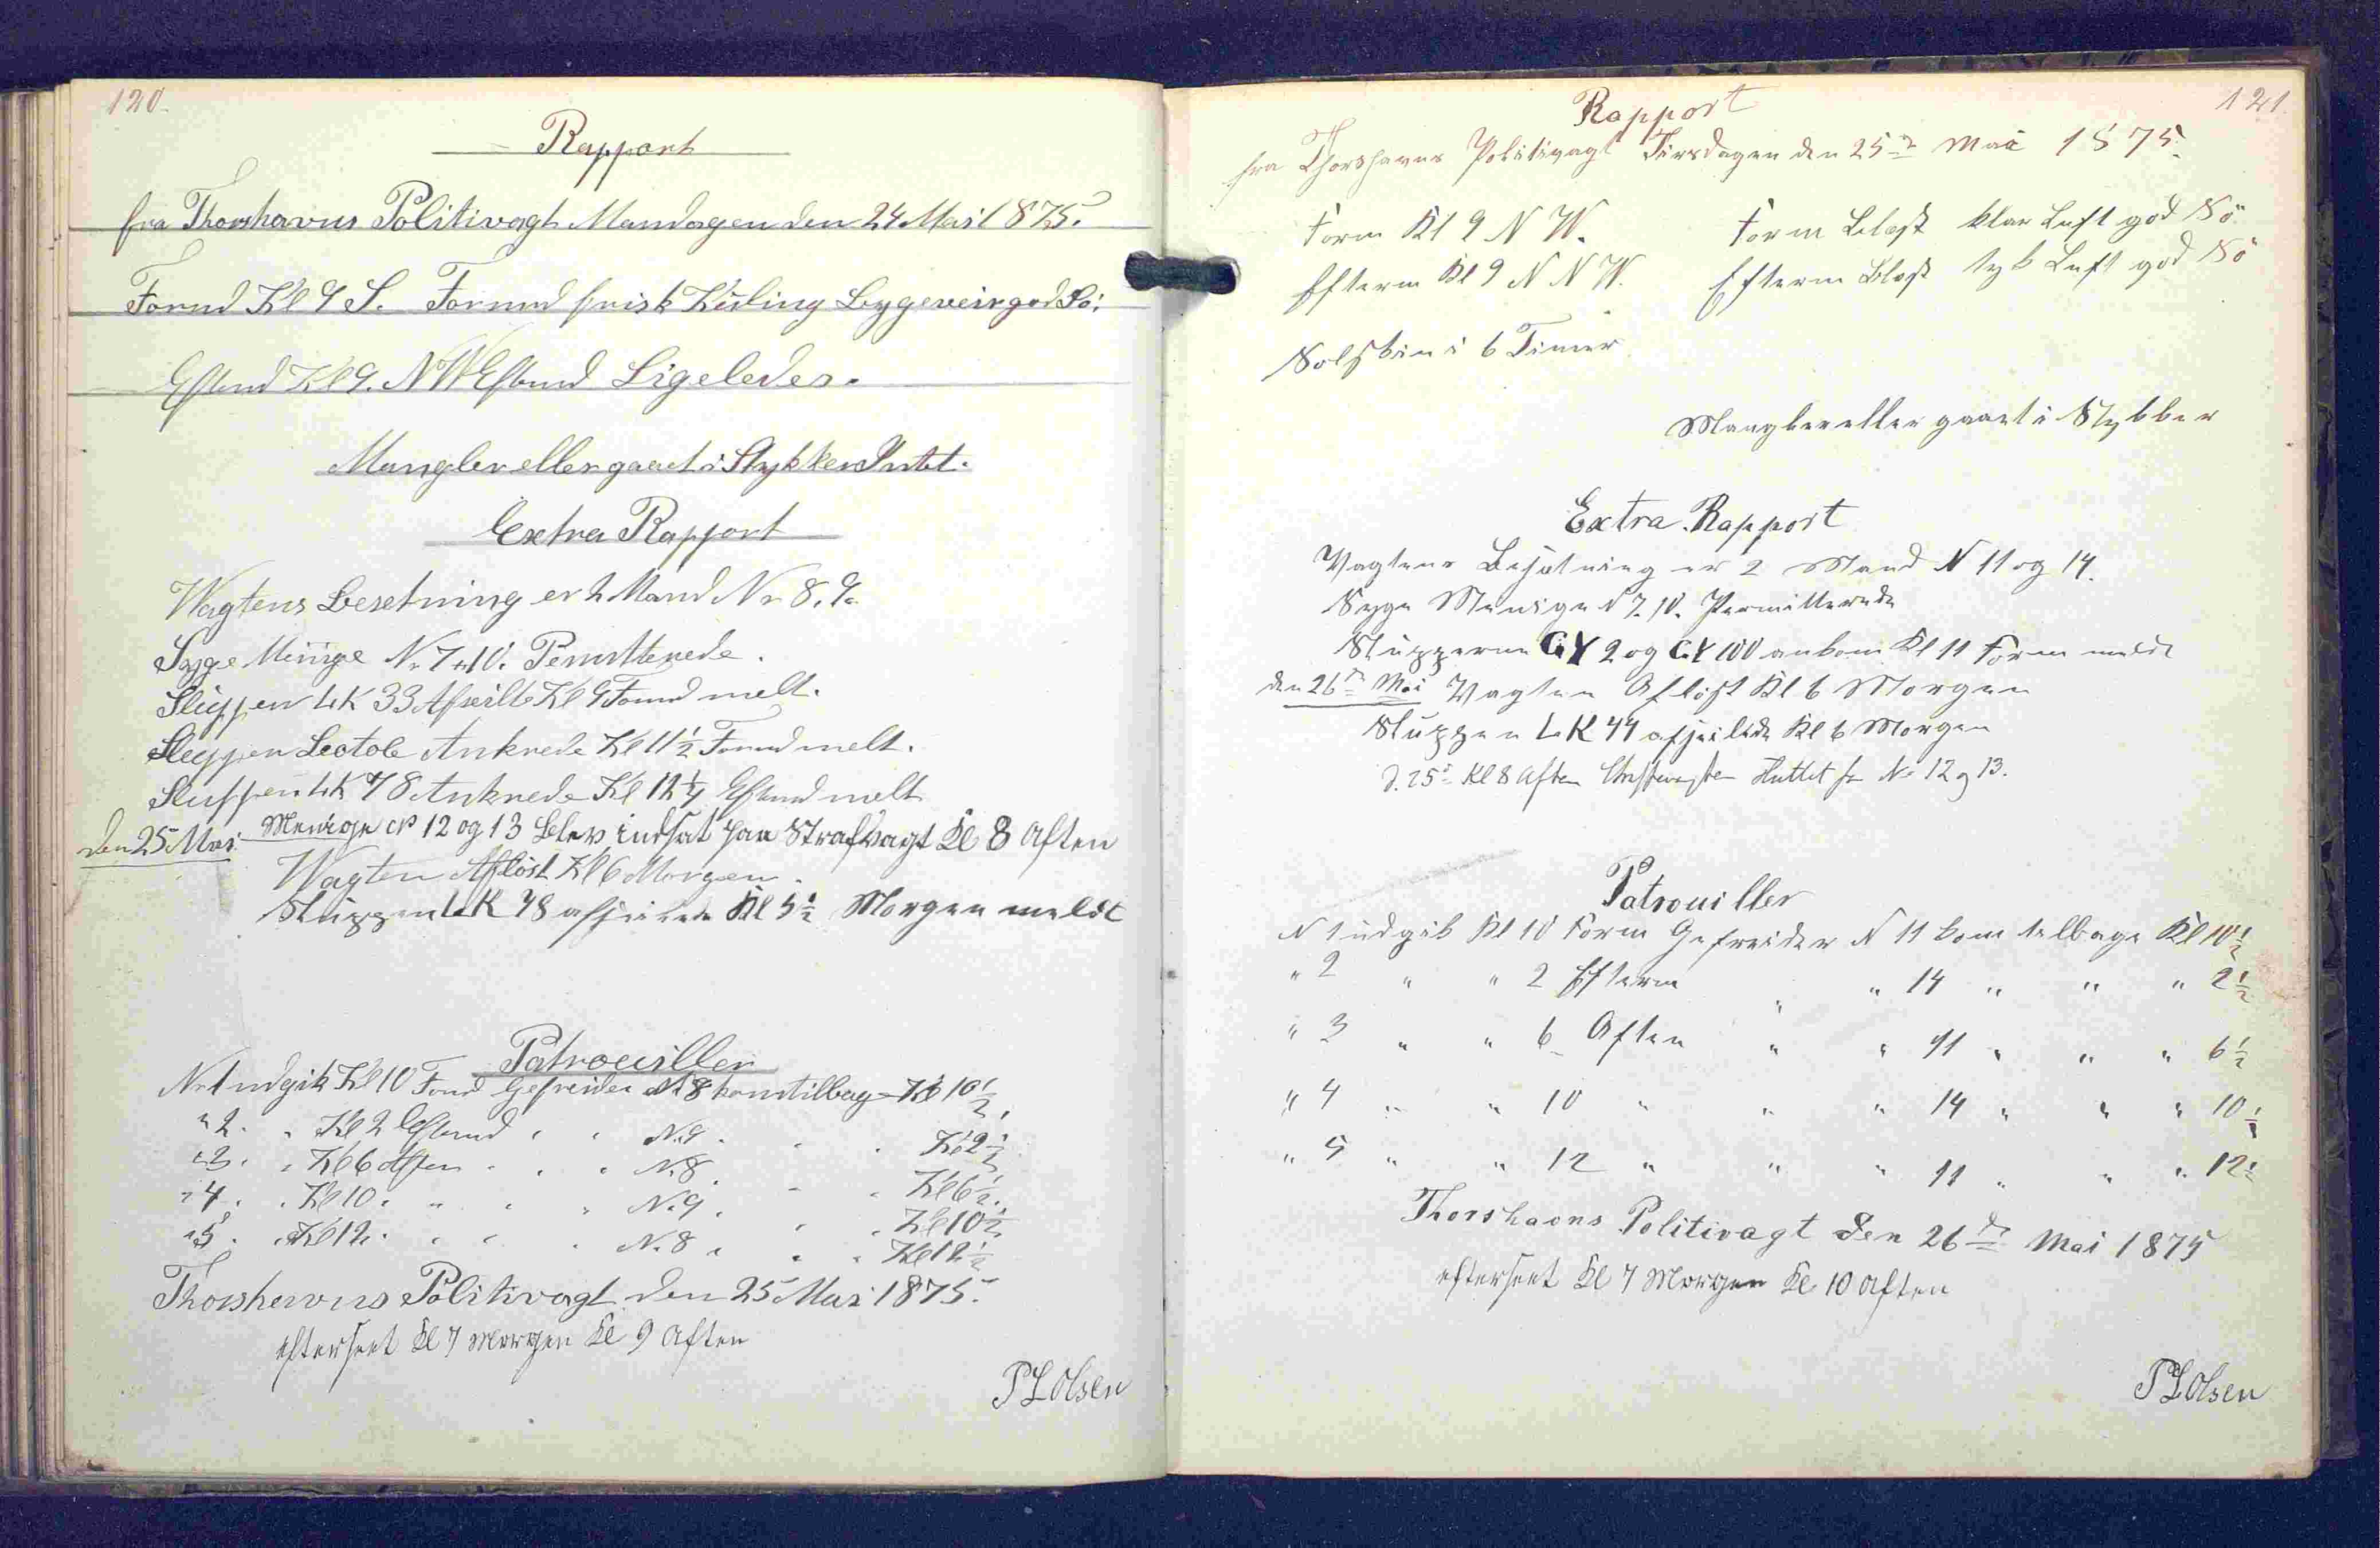 120.
Rapport
fra Thorshavns Politivagt Mandagen den 24 Mai 1875.
Formd Kl 9 S. Formd frisk Kuling Bygeveir god Sö:
Eftmd Kl 9. NW Eftmd Ligeledes.
Mangler eller gaaet i Stykker Intet.
Extra Rapport
Wagtens Besetning er 2 Mand Nr 8. 9.
Syge Menige Nr 7 + 10. Permitterede.
Sluppen LK 33 Afseilte Kl 9 Formd melt.
Sluppen Ankrede Kl 11½ Formd melt.
Sluppen LK 78 Ankrede Kl 12¼ Eftmd melt
Menige N 12 og 13 Blev indsat paa Strafvagt Kl 8 Aften
den 25 Mai. Wagten Aflöst Kl 6 Morgen.
Sluppen LK 78 afseilede Kl 5½ Morgen meldt
Patrouiller
Nr 1 udgik Kl 10 Formd Gefreider N 8 kom tilbage Kl 10½
" 2. " Kl 2 Eftmd " " N. 9 " " Kl 2½
" 3. " Kl 6 Aften " " N. 8 " " Kl 6½.
" 4. " Kl 10. " " " N. 9. " " Kl 10½
" 5. " Kl 12. " " " N. 8 " " " Kl 12½
Thorshavns Politivagt den 25 Mai 1875.
efterseet Kl 7 Morgen Kl 9 Aften
P L Olsen
121.
Rapport
fra Thorshavns Politivagt Tirsdagen den 25de Mai 1875.
Form Kl 9 N W. Form Blæst klar Luft god Sö
Efterm Kl 9 N N W. Efterm Blæst tyk Luft god Sö
Solskin i 6 Timer
Mangler eller gaaet i Stykker
Extra Rapport
Vagtens Besætning er 2 Mand N 11 og 14.
Syge Menige N 7. 10. Permitterede
Slupperne GY 2 og GY 100 ankom Kl 11 Form meldt
den 26de Mai Vagten Aflöst Kl 6 Morgen
Sluppen LK 44 afseilede Kl 6 Morgen
d. 25de Kl 8 Aften No 12 og 13.
Patrouiller
N 1 udgik Kl 10 Form Gefreider N 11 kom tilbage Kl 10½
" 2 " " 2 Efterm " " 14 " " " 2½
" 3 " " 6 Aften " " 11 " " " 6½
" 4 " " 10 " " " 14 " " " 10½
" 5 " " 12 " " " 11 " " " 12½
Thorshavns Politivagt den 26de Mai 1875
efterseet Kl 7 Morgen Kl 10 Aften
P L Olsen